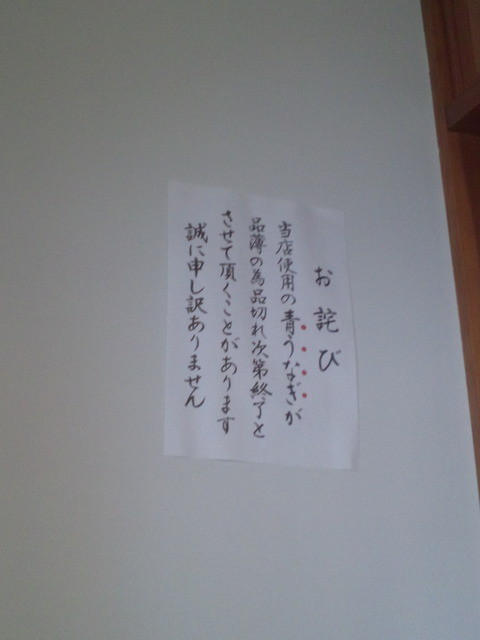 お詫び
当店使用の青うなぎが
品薄の為品切れ次第終了と
させて頂くことがあります
誠に申し訳ありません